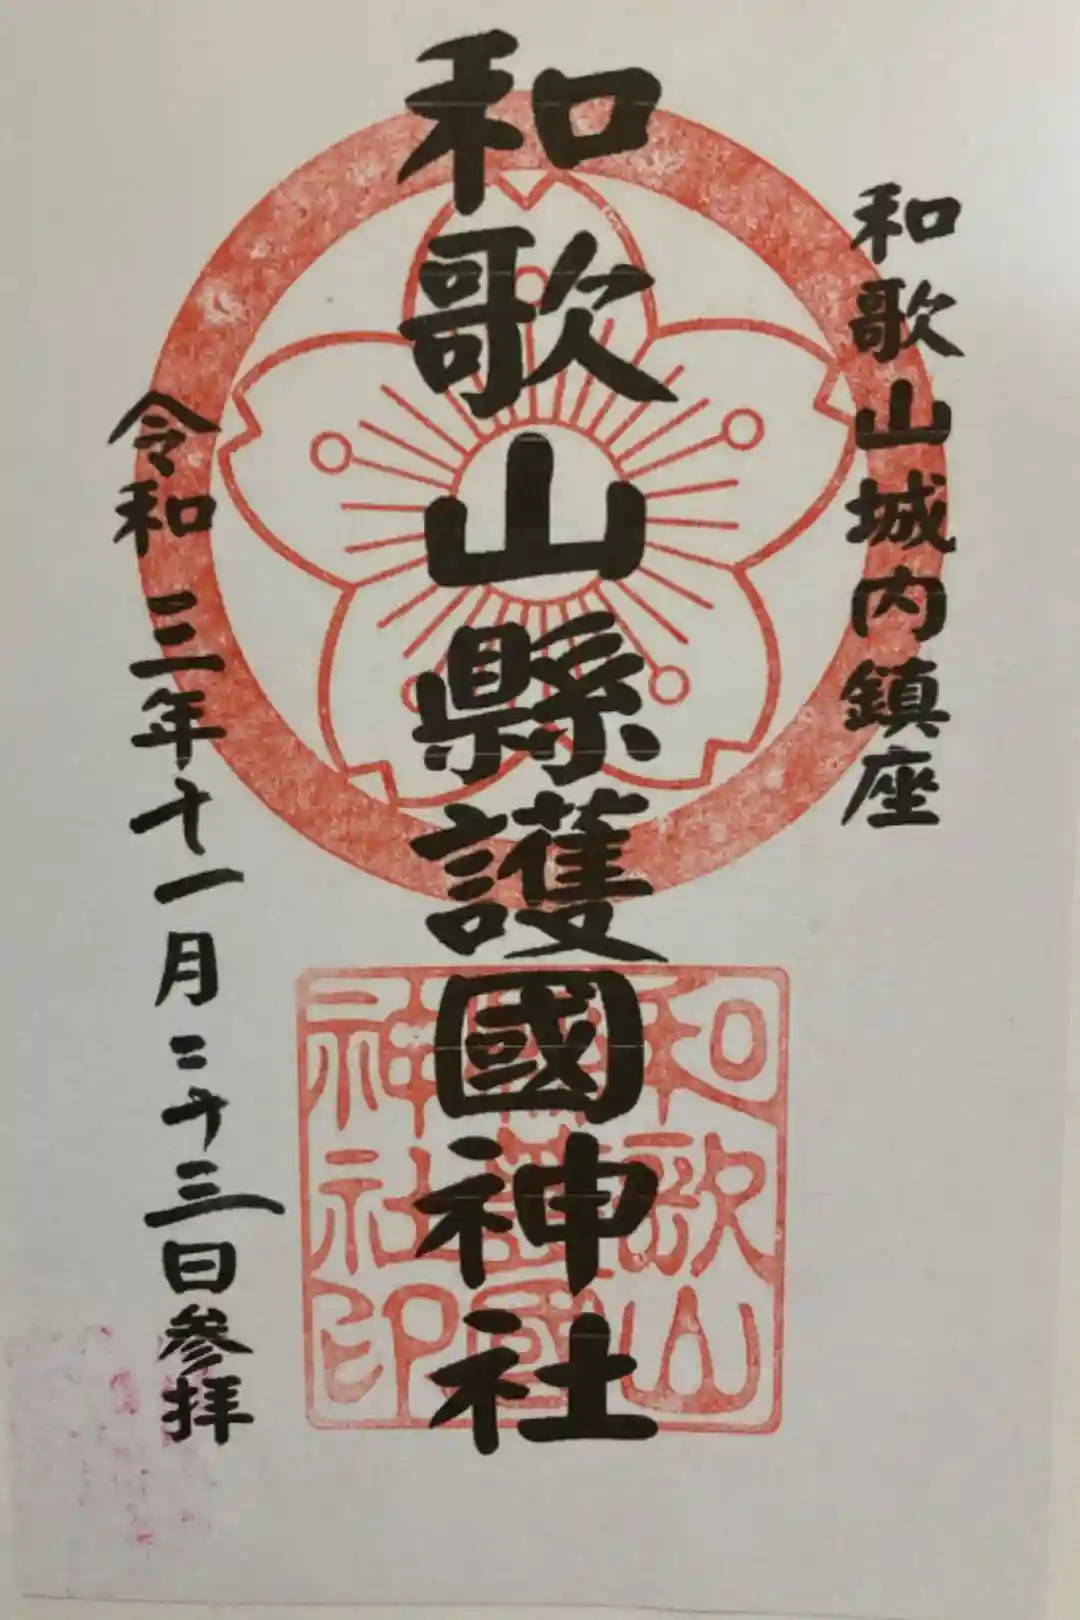 和歌山城内鎮座
和歌山縣護國神社
令和三年十一月二十三日参拝
和歌山
縣護國
神社印